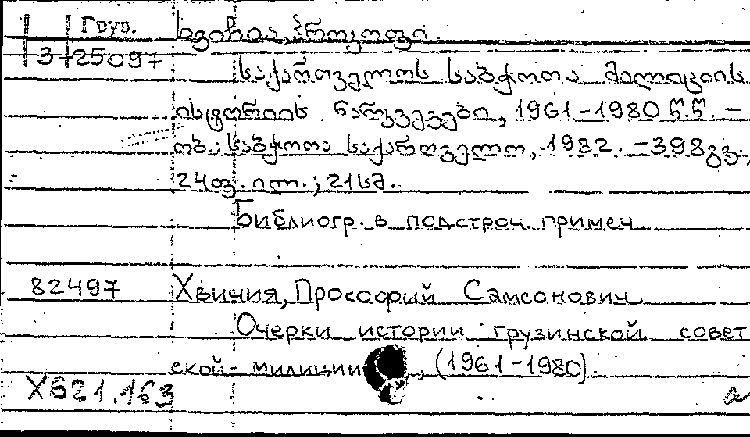 Груз.
ხვიჩია, პროკოფი.
3-25097
საქართველოს საბჭოთა მილიციის
ისტორიის ნარკვევები, 1961-1980 წ.წ. —
თბ.: საბჭოთა საქართველო, 1982. -398გვ.,
24ფ. ილ.; 21სმ.
Библиогр. в подстроч. примеч.
82497
Хвичия, Прокофий Самсонович
Очерки истории грузинской совет
ской милиции, (1961-1980).
Х621.163